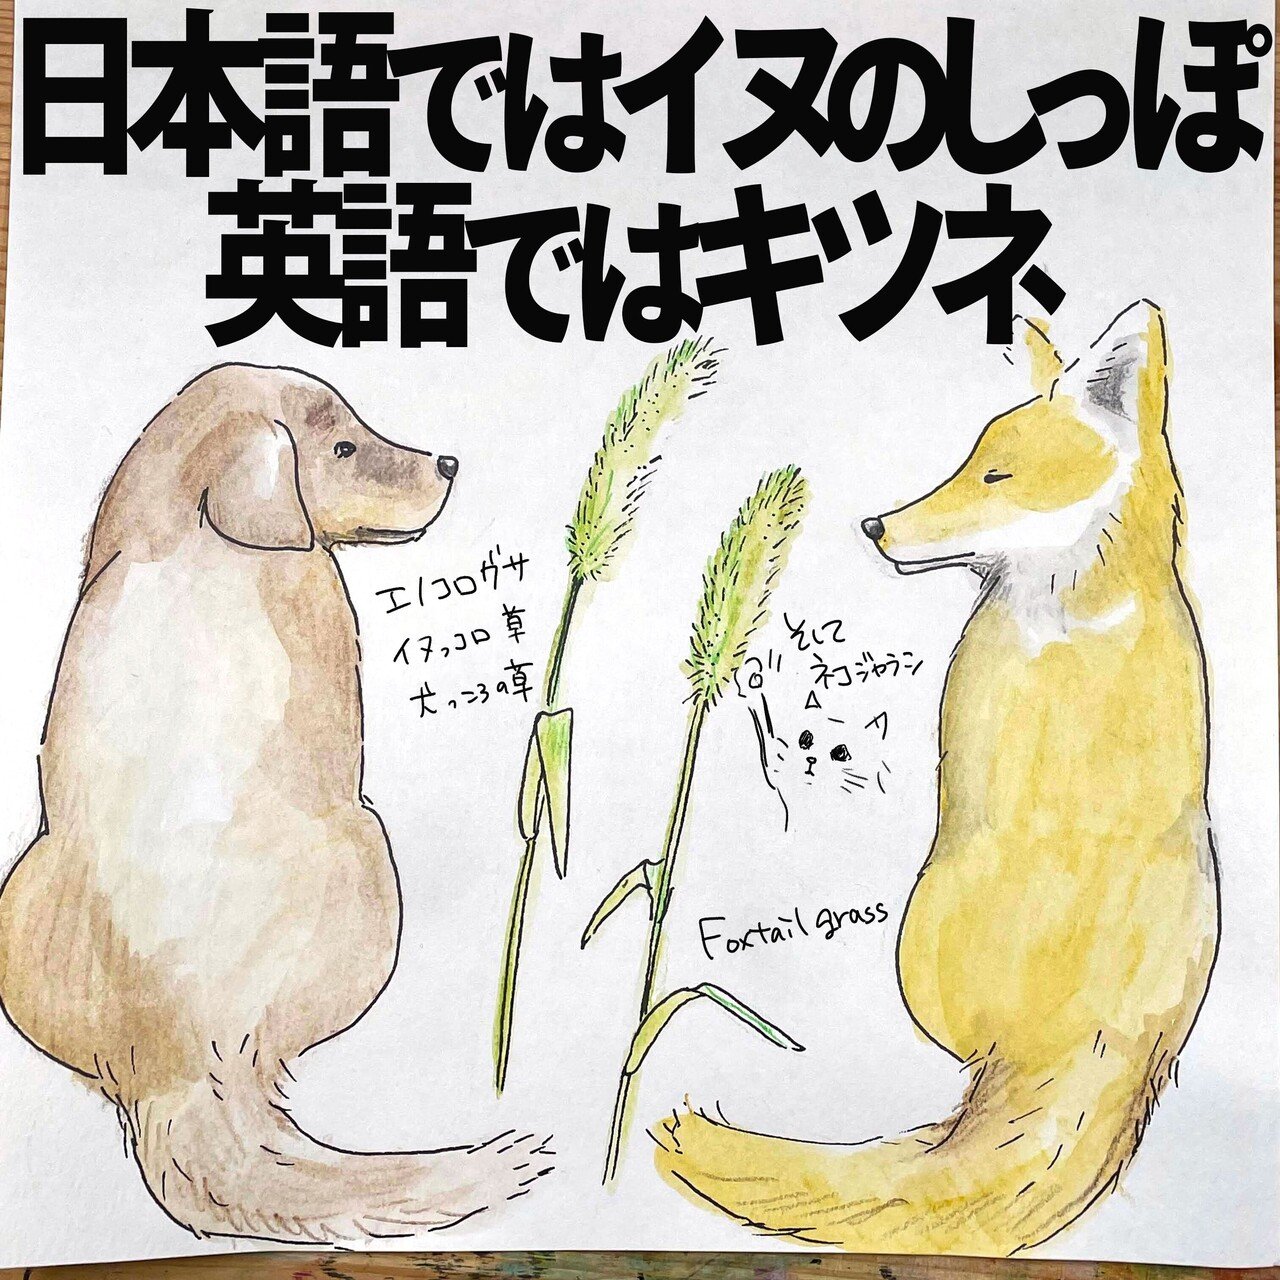 日本語ではイヌのしっぽ
英語ではキツネ
エノコログサ
イヌっコロ草
犬っころの草
そして
ネコジャラシ
Foxtail grass